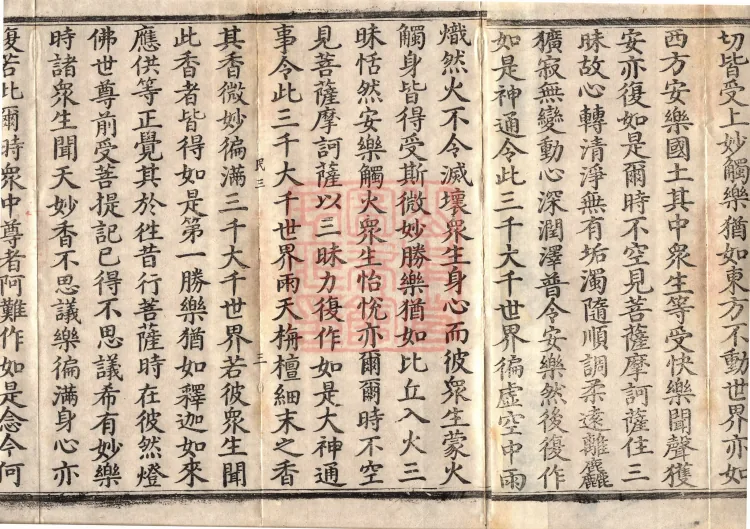 切皆受上妙觸樂猶如東方不動世界亦如
西方安樂國土其中衆生等受快樂聞聲獲
安亦復如是爾時不空見菩薩摩訶薩住三
昧故心轉清淨無有垢濁隨順調柔遠離麤
獷寂無變動心深潤澤普令安樂然後復作
如是神通令此三千大千世界徧虛空中雨
熾然火不令滅壞衆生身心而彼衆生蒙火
觸身皆得受斯微妙勝樂猶如比丘入火三
昧恬然安樂觸火衆生怡悅亦爾爾時不空
見菩薩摩訶薩以三昧力復作如是大神通
事令此三千大千世界雨天栴檀細末之香
民三 三
其香微妙徧滿三千大千世界若彼衆生聞
此香者皆得如是第一勝樂猶如釋迦如來
應供等正覺其於徃昔行菩薩時在彼然燈
佛世尊前受菩提記已得不思議希有妙樂
時諸衆生聞天妙香不思議樂徧滿身心亦
復若此爾時衆中尊者阿難作如是念今何